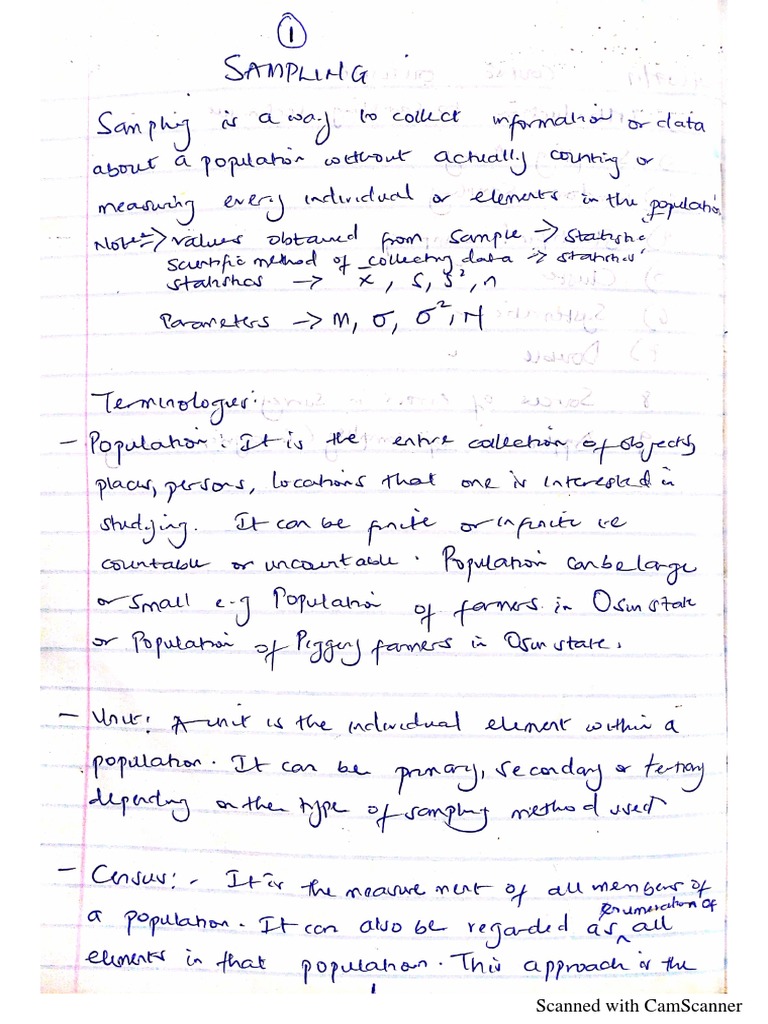 1
SAMPLING
Sampling is a way to collect information or data
about a population without actually counting or
measuring every individual or elements in the population
Note => values obtained from sample -> statistic
Scientific method of collecting data => statistics
statistics -> x, s, s², n
Parameters -> M, σ, σ², N
Terminologies:
- Population: It is the entire collection of objects,
places, persons, locations that one is interested in
studying. It can be finite or infinite ie
countable or uncountable. Population can be large
or small e-g Population of farmers in Osun state
or Population of Piggery farmers in Osun state.
- Unit: A unit is the individual element within a
population. It can be primary, secondary or tertiary
depending on the type of sampling method used
- Census: - It is the measurement of all members of
a population. It can also be regarded as enumeration of all
elements in that population. This approach is the
1
Scanned with CamScanner